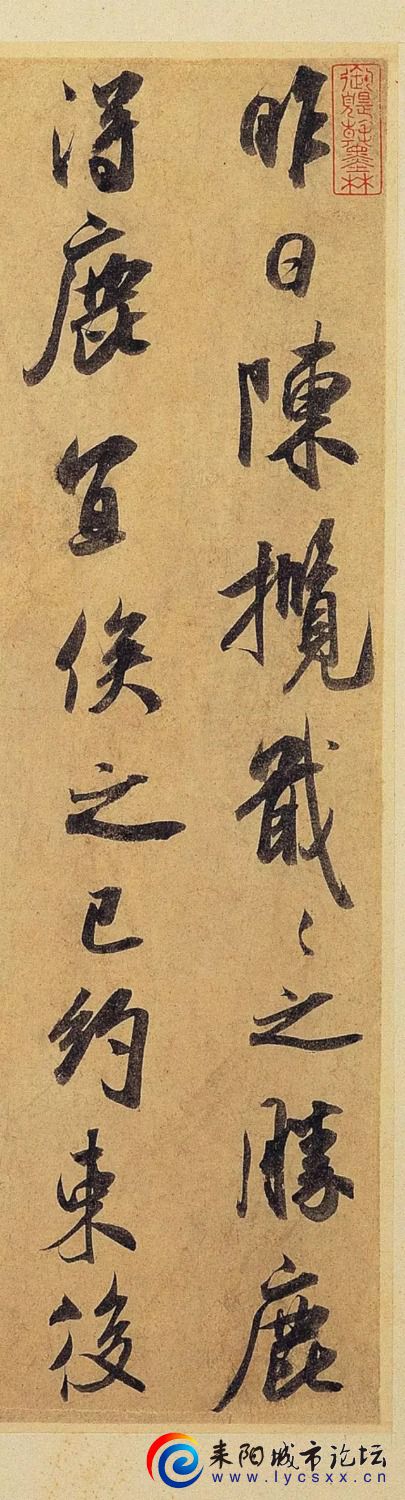 御題翰墨林
昨日陳攬戢〻之勝鹿
得鹿宜俟之已約束後
耒阳城市论坛
www.lycsxx.cn